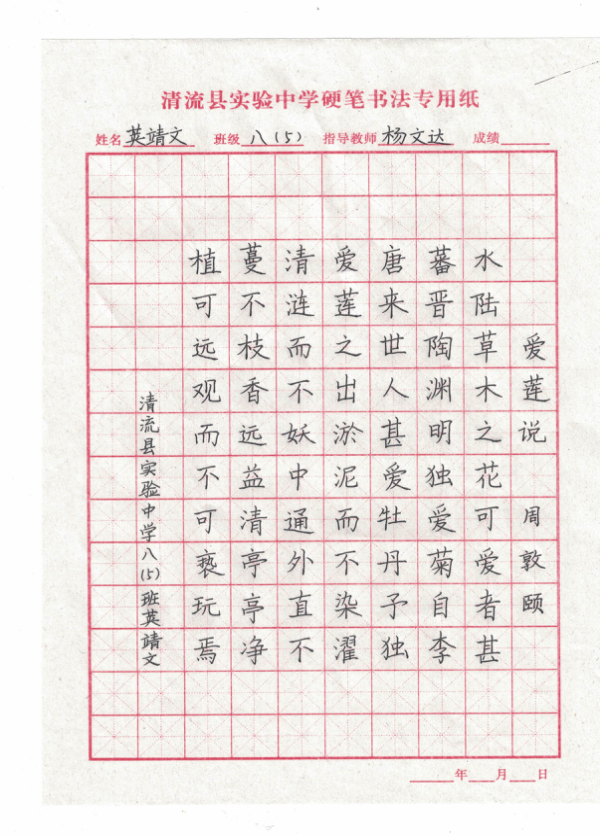 清流县实验中学硬笔书法专用纸
姓名 英靖文 班级 八(5) 指导教师 杨文达 成绩
爱莲说 周敦颐
水陆草木之花可爱者甚
蕃晋陶渊明独爱菊自李
唐来世人甚爱牡丹予独
爱莲之出淤泥而不染濯
清涟而不妖中通外直不
蔓不枝香远益清亭亭净
植可远观而不可亵玩焉
清流县实验中学八(5)班英靖文
年 月 日